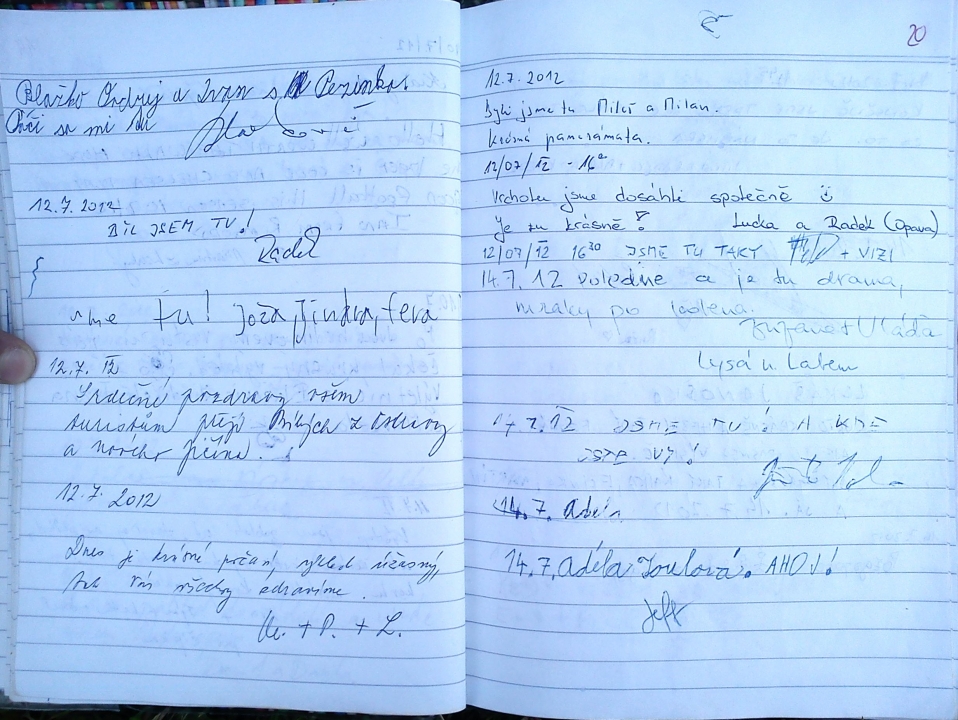 Blažko Ondrej a Ivan s Pezinka.
Chči sa mi
12.7.2012
BIL JSEM TU!
Radel
tu! Joža, Jindra,
12.7. 12
Srdečné pozdravy všem
turistům z Ostravy
a nového Jičína.
12.7.2012
Dnes je krásné počasí, výhled úžasný,
tak Vás všechny zdravíme.
M. + P. + L.
20
12.7.2012
Byli jsme tu Miluš a Milan.
Krásná panoramata.
12/07/12 - 16
Vrcholu jsme dosáhli společně
Je tu krásně! Lucka a Radek (Opava)
12/07/12 16 30 JSME TU TAKY + VIZI
14.7. 12 poledne a je tu drama,
mraky po kolena.
Zuzana + Vláďa
Lysá n. Labem
14.7.12 JSME TU! A KDE
JSTE VY!
14.7.
14.7. Adéla AHOJ!
Jeff